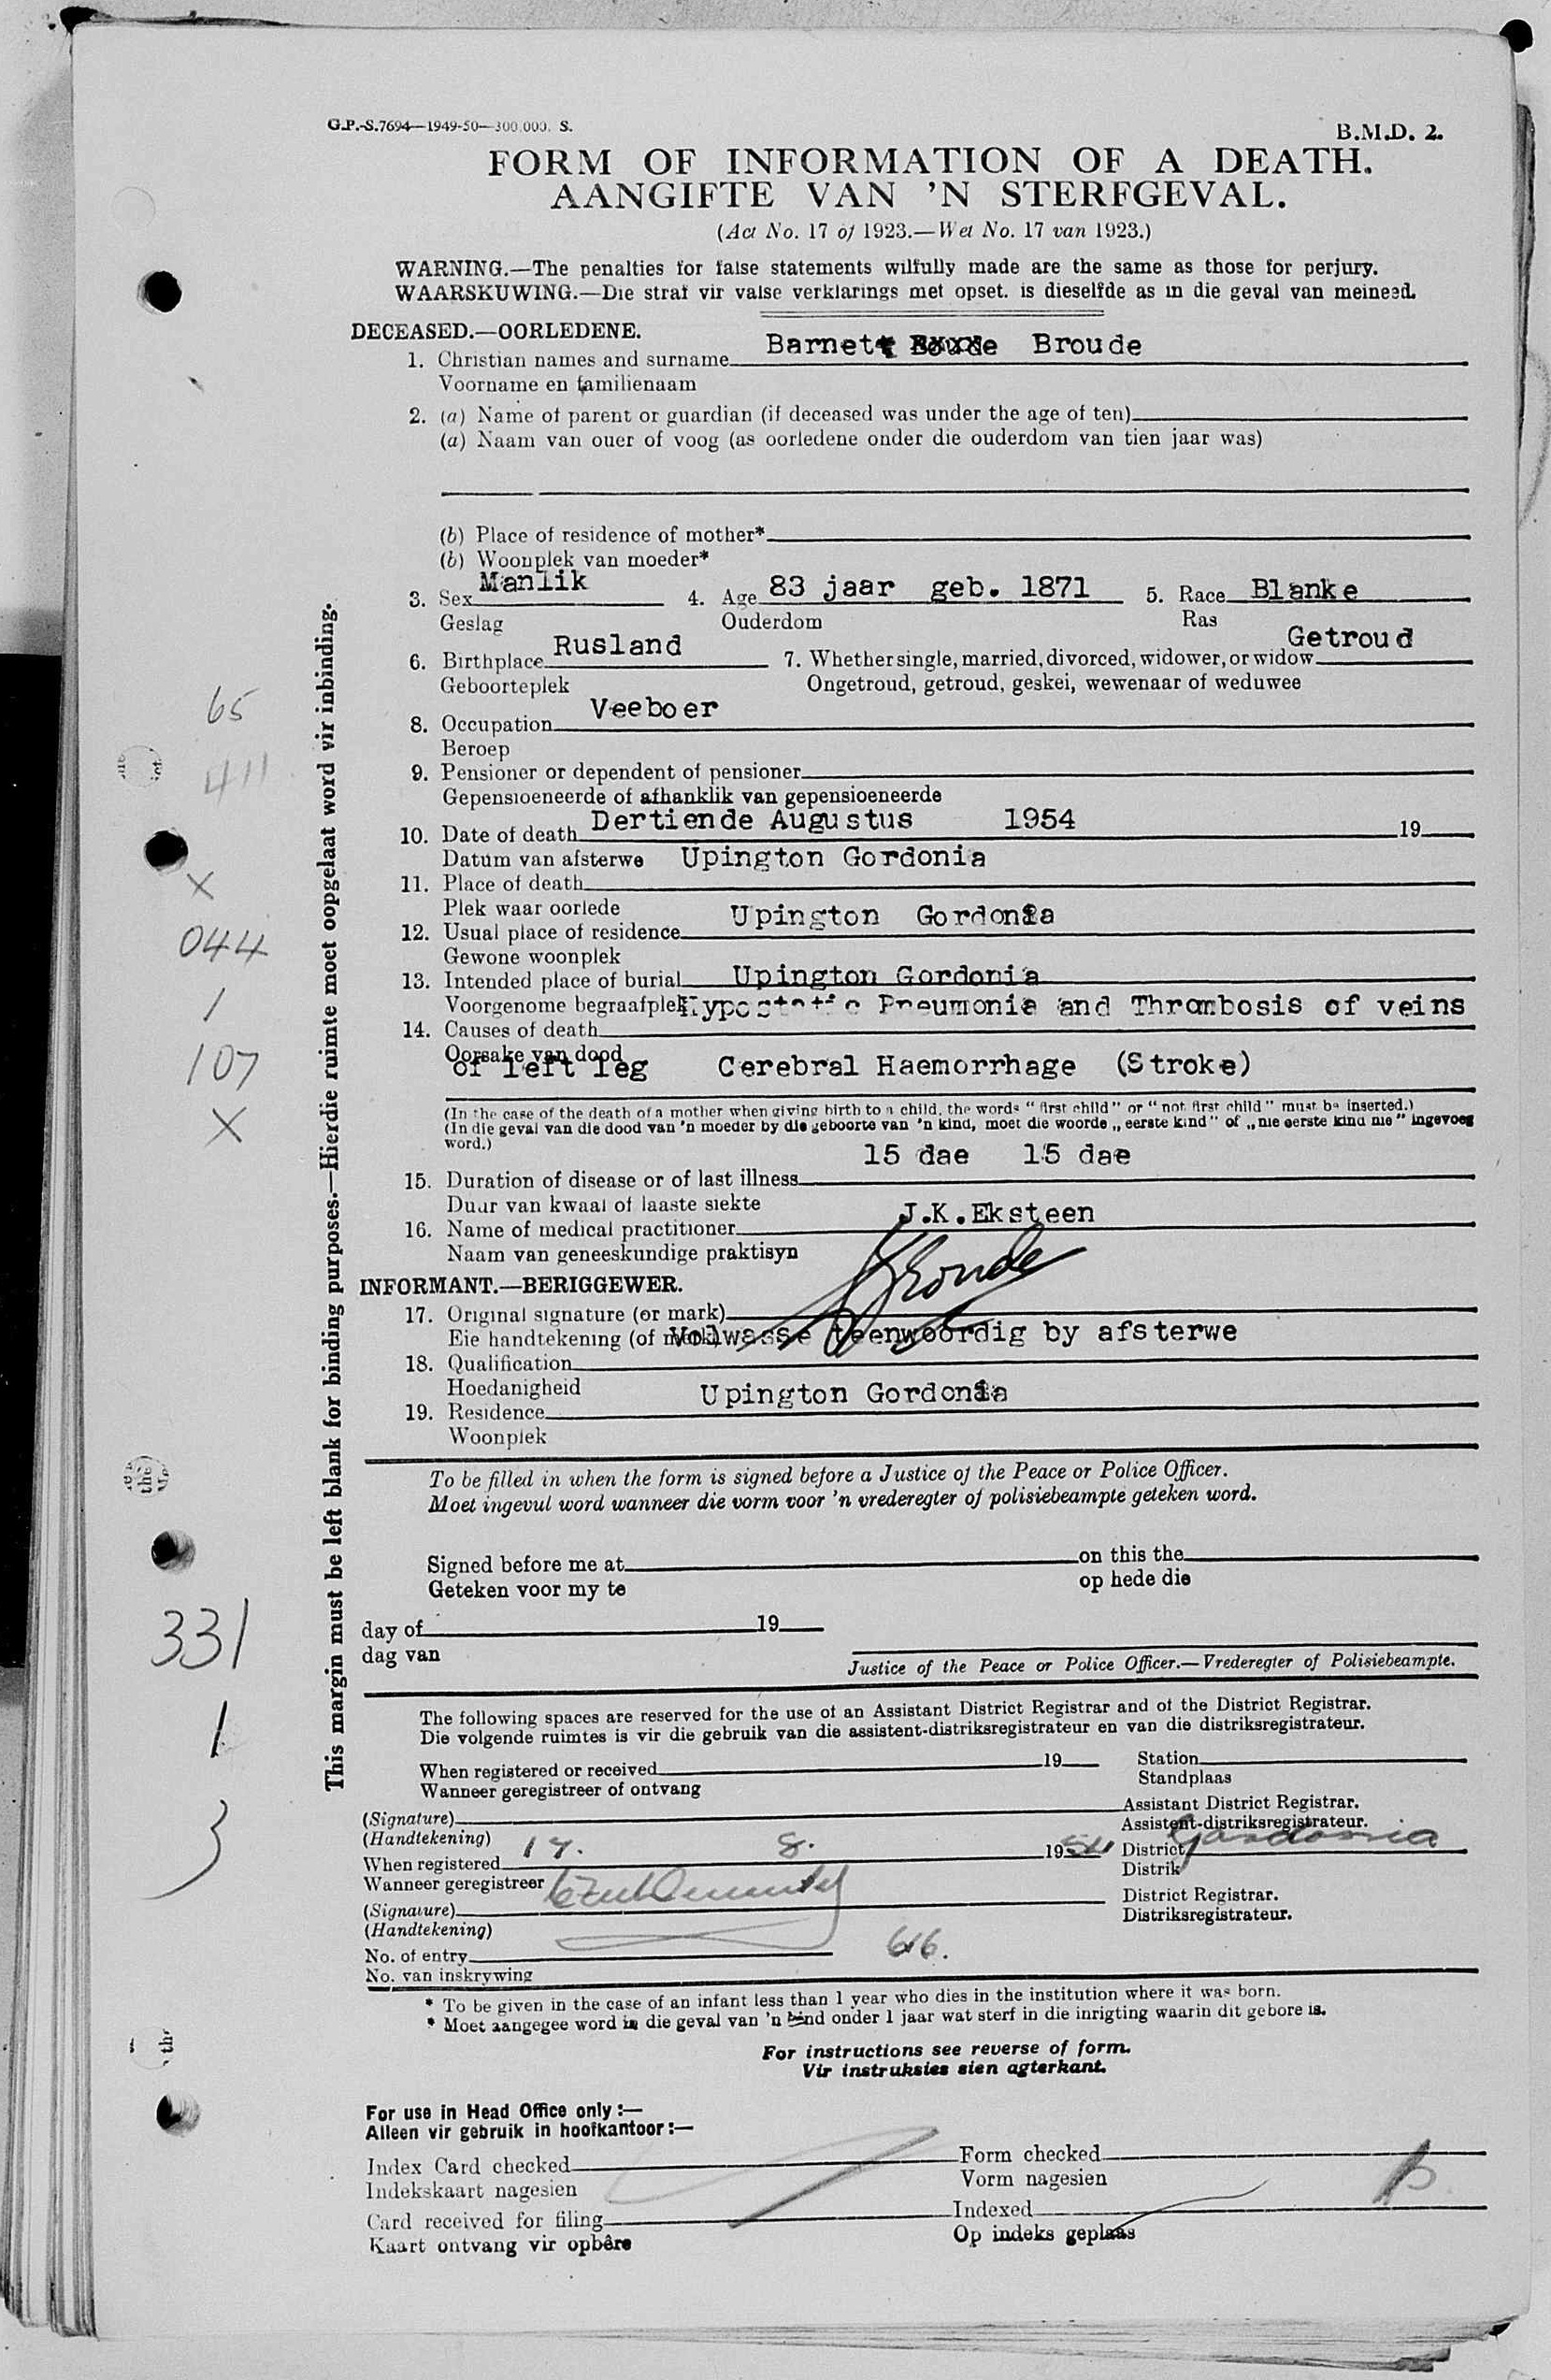 G.P.-S.7694—1949-50—300,000. S.
B.M.D. 2.
FORM OF INFORMATION OF A DEATH.
AANGIFTE VAN 'N STERFGEVAL.
(Act No. 17 of 1923.—Wet No. 17 van 1923.)
WARNING.—The penalties for false statements wilfully made are the same as those for perjury.
WAARSKUWING.—Die straf vir valse verklarings met opset. is dieselfde as in die geval van meineed.
DECEASED.—OORLEDENE.
1. Christian names and surname Barnett Broude
Voorname en familienaam
2. (a) Name of parent or guardian (if deceased was under the age of ten)
(a) Naam van ouer of voog (as oorledene onder die ouderdom van tien jaar was)
(b) Place of residence of mother*
(b) Woonplek van moeder*
3. Sex Manlik 4. Age 83 jaar geb. 1871 5. Race Blanke
Geslag Ouderdom Ras
6. Birthplace Rusland 7. Whether single, married, divorced, widower, or widow Getroud
Geboorteplek Ongetroud, getroud, geskei, wewenaar of weduwee
8. Occupation Veeboer
Beroep
9. Pensioner or dependent of pensioner
Gepensioeneerde of afhanklik van gepensioeneerde
10. Date of death Dertiende Augustus 1954 19
Datum van afsterwe
11. Place of death Upington Gordonia
Plek waar oorlede
12. Usual place of residence Upington Gordonia
Gewone woonplek
13. Intended place of burial Upington Gordonia
Voorgenome begraafplek
14. Causes of death Hypostatic Pneumonia and Thrombosis of veins
Oorsake van dood
of left leg Cerebral Haemorrhage (Stroke)
(In the case of the death of a mother when giving birth to a child, the words "first child" or "not first child" must be inserted.)
(In die geval van die dood van 'n moeder by die geboorte van 'n kind, moet die woorde „eerste kind" of „nie eerste kind nie" ingevoeg
word.)
15. Duration of disease or of last illness 15 dae 15 dae
Duur van kwaal of laaste siekte
16. Name of medical practitioner J.K.Eksteen
Naam van geneeskundige praktisyn
INFORMANT.—BERIGGEWER.
17. Original signature (or mark) Broude
Eie handtekening (of merk)
18. Qualification Volwasse teenwoordig by afsterwe
Hoedanigheid
19. Residence Upington Gordonia
Woonplek
To be filled in when the form is signed before a Justice of the Peace or Police Officer.
Moet ingevul word wanneer die vorm voor 'n vrederegter of polisiebeampte geteken word.
Signed before me at on this the
Geteken voor my te op hede die
day of 19
dag van
Justice of the Peace or Police Officer.—Vrederegter of Polisiebeampte.
The following spaces are reserved for the use of an Assistant District Registrar and of the District Registrar.
Die volgende ruimtes is vir die gebruik van die assistent-distriksregistrateur en van die distriksregistrateur.
When registered or received 19 Station
Wanneer geregistreer of ontvang Standplaas
(Signature) Assistant District Registrar.
(Handtekening) Assistent-distriksregistrateur.
When registered 17. 8. 1954 District Gordonia
Wanneer geregistreer Distrik
(Signature) District Registrar.
(Handtekening) Distriksregistrateur.
No. of entry 616.
No. van inskrywing
* To be given in the case of an infant less than 1 year who dies in the institution where it was born.
* Moet aangegee word in die geval van 'n kind onder 1 jaar wat sterf in die inrigting waarin dit gebore is.
For instructions see reverse of form.
Vir instruksies sien agterkant.
For use in Head Office only:—
Alleen vir gebruik in hoofkantoor:—
Index Card checked Form checked
Indekskaart nagesien Vorm nagesien
Card received for filing Indexed
Kaart ontvang vir opbêre Op indeks geplaas
This margin must be left blank for binding purposes.—Hierdie ruimte moet oopgelaat word vir inbinding.
65
411
X
044
1
107
X
331
1
3